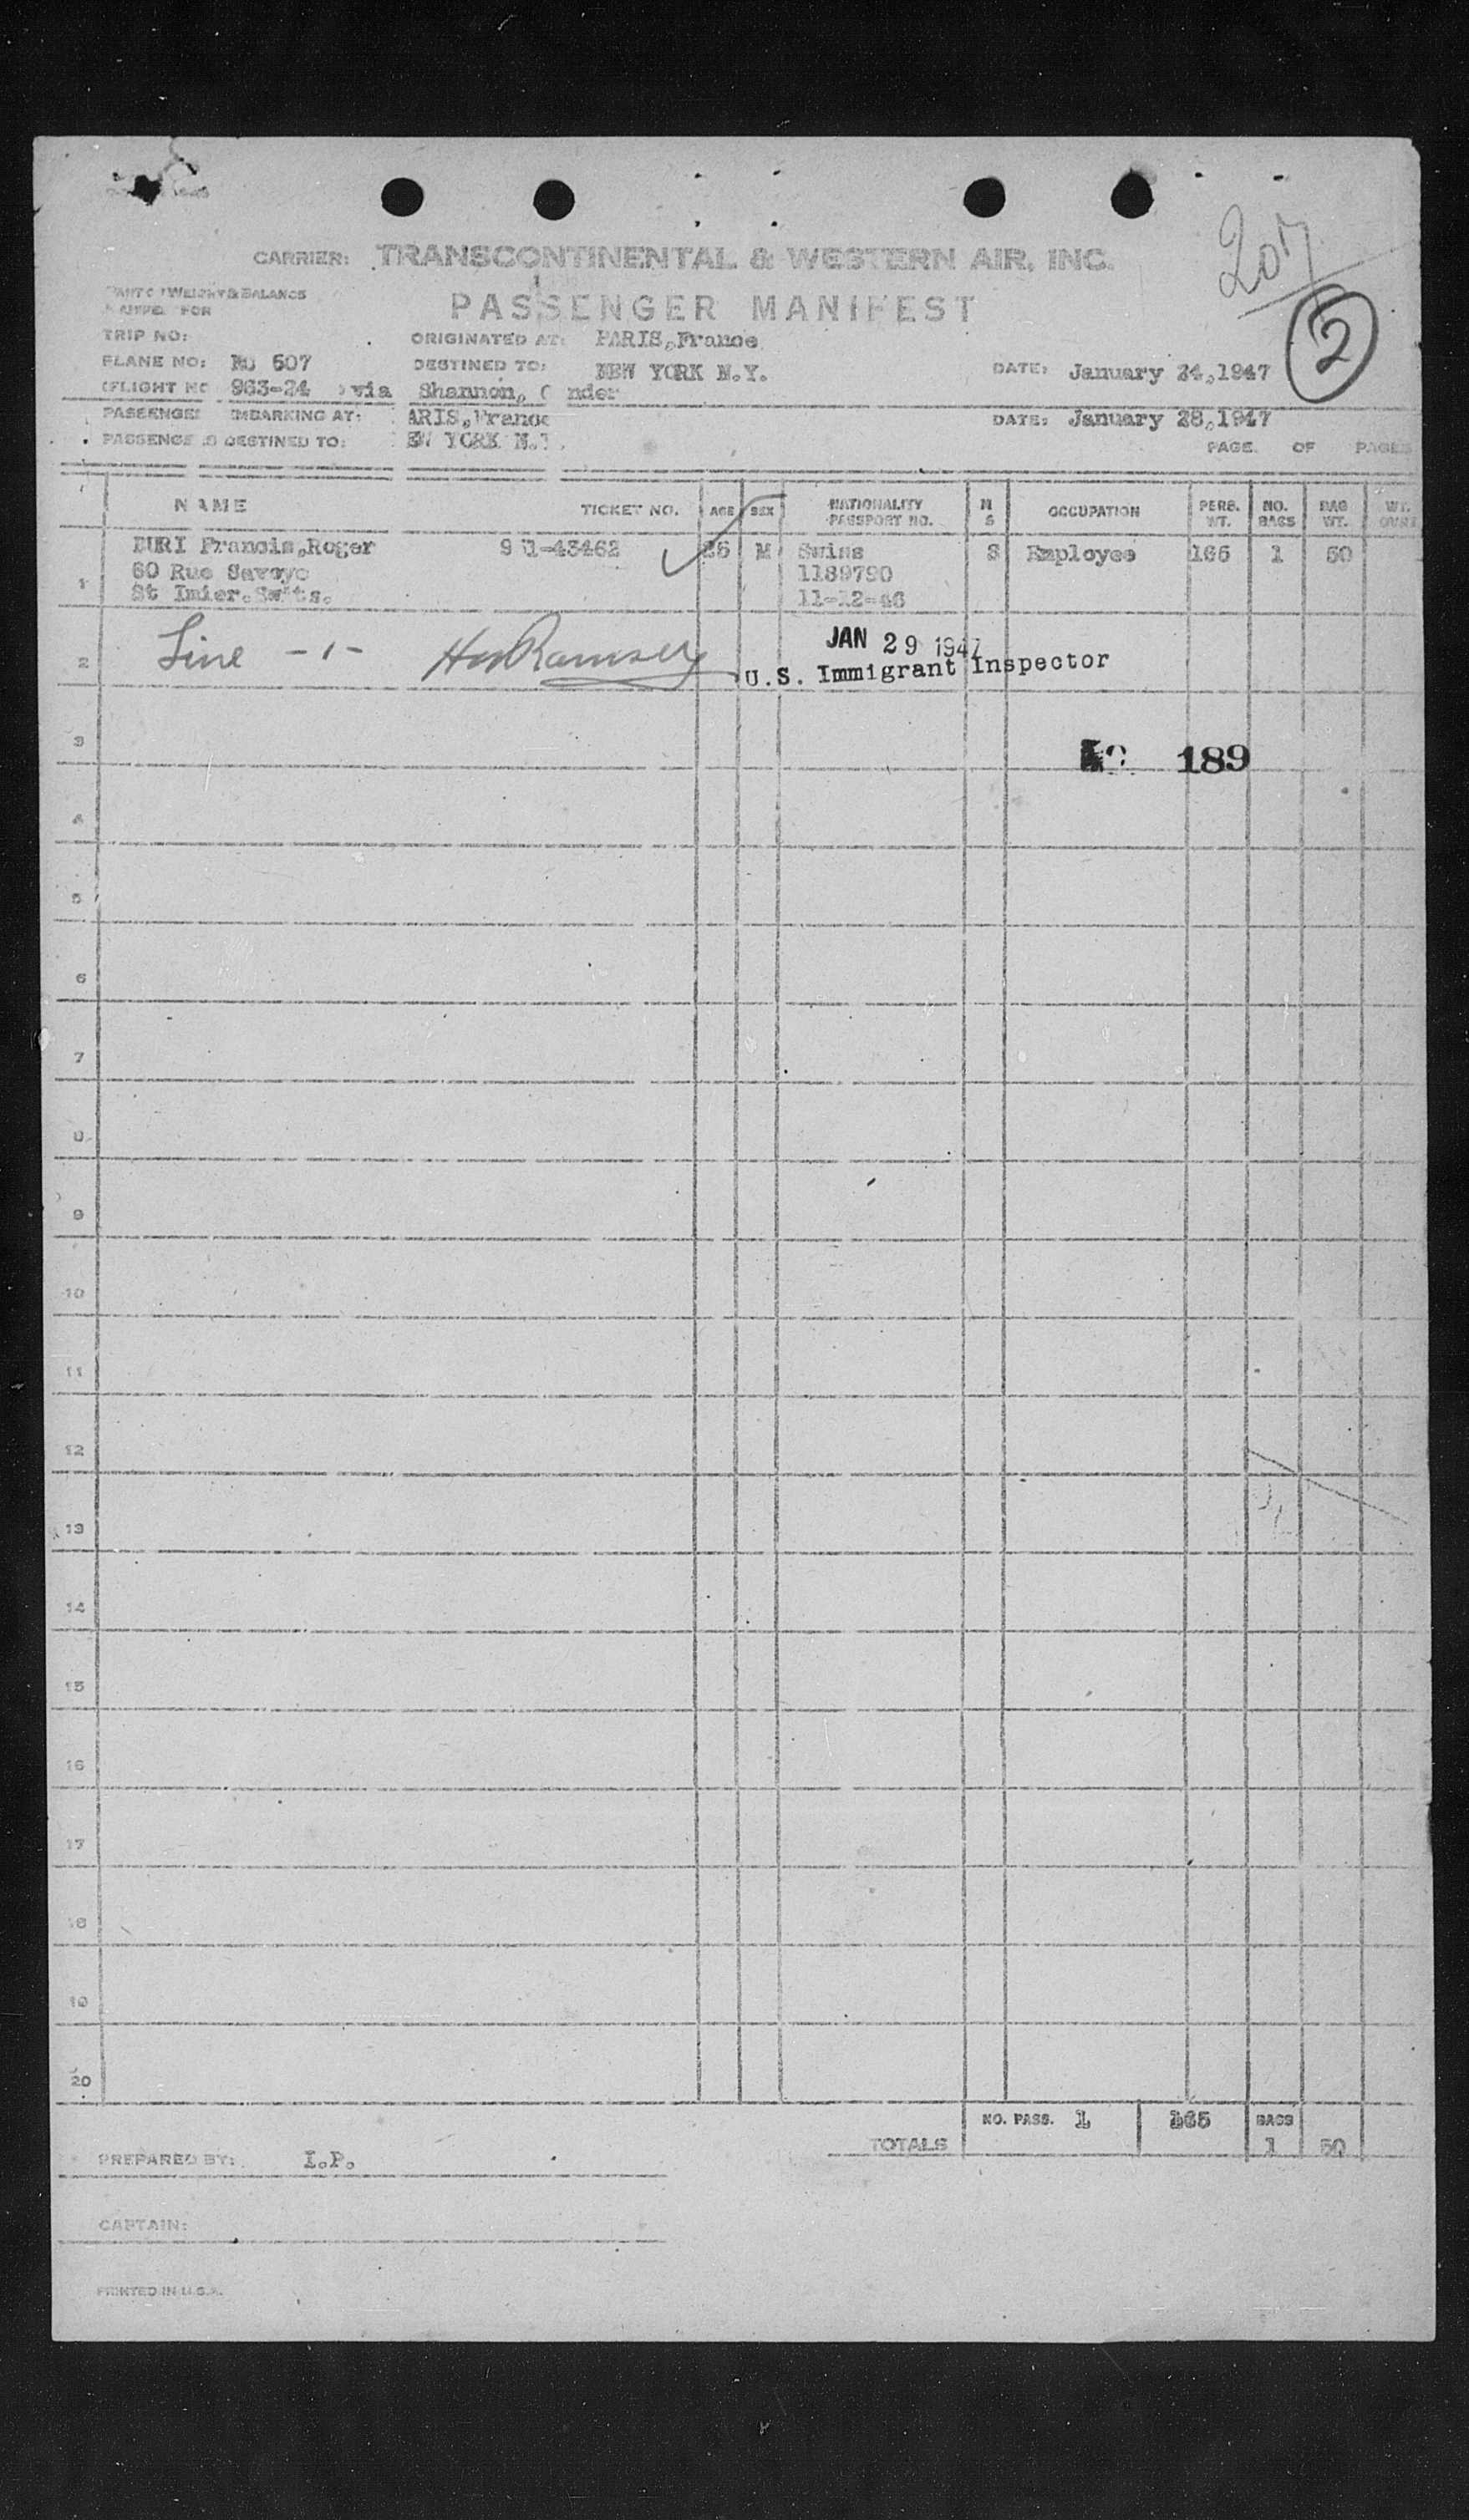 CARRIER: TRANSCONTINENTAL & WESTERN AIR, INC.
PART OF WEIGHT & BALANCE
FOR
PASSENGER MANIFEST
TRIP NO: ORIGINATED AT: PARIS, France
PLANE NO: No 507 DESTINED TO: NEW YORK N.Y. DATE: January 24, 1947
(FLIGHT NO 963-24 ) via Shannon, G nder
PASSENGE EMBARKING AT: ARIS, France DATE: January 28, 1947
PASSENGE S DESTINED TO: EW YORK N.Y.
PAGE OF PAGES
NAME TICKET NO. AGE SEX NATIONALITY PASSPORT NO. M S OCCUPATION PERS. WT. NO. BAGS BAG WT. WT.
1 BURI Francis, Roger 9 1-43462 26 M Swiss S Employee 165 1 50
60 Rue Savoye 1189790
St Imier. Swits. 11-12-46
2 Line -1- HwRamsey JAN 29 1947
U.S. Immigrant Inspector
3 189
4
5
6
7
8
9
10
11
12
13
14
15
16
17
18
19
20
NO. PASS. 1 165 BAGS
TOTALS 1 50
PREPARED BY: I.P.
CAPTAIN:
PRINTED IN U.S.A.
207
2